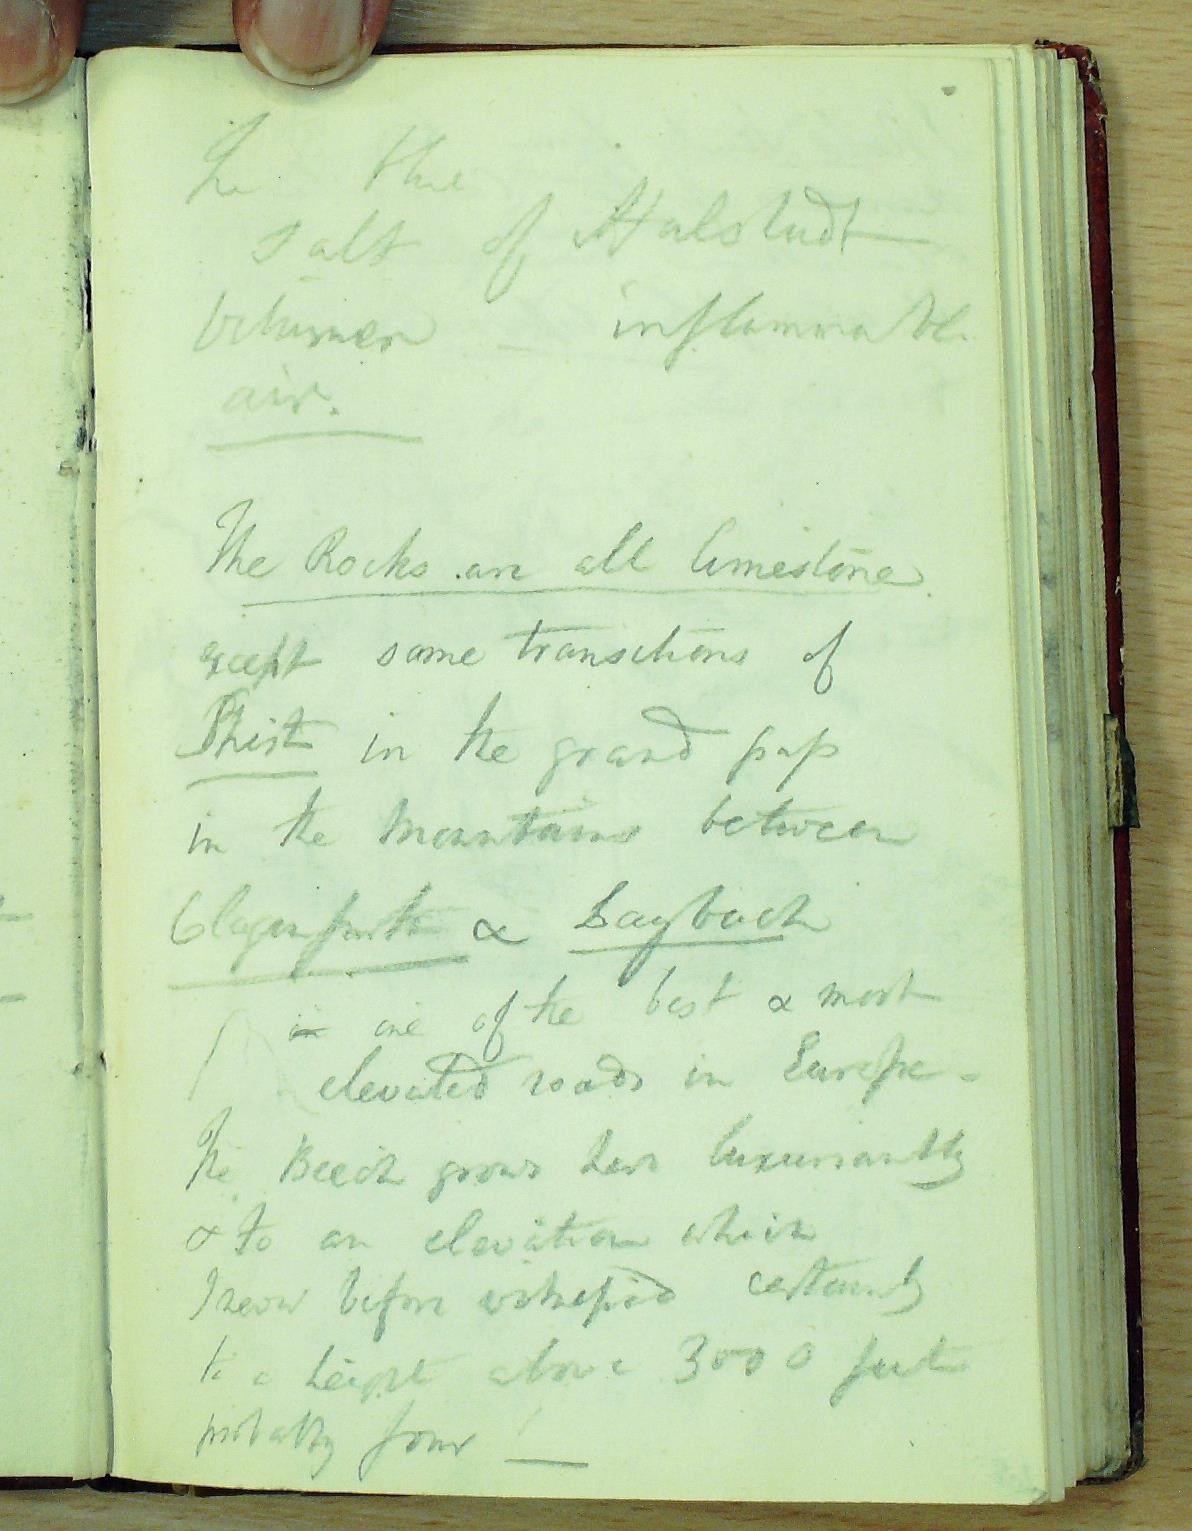 In the
salt of Halstadt
bitumen inflammable
air.
The Rocks are all limestone
except some transitions of
Shist in the grand pass
in the Mountains between
Clagenfurth & Laybach
is one of the best & most
elevated roads in Europe -
The Beech grows here luxuriantly
& to an elevation which
I never before witnessed certainly
to a height above 3000 feet
probably four